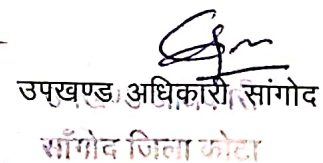 उपखण्ड अधिकारी सांगोद
साँगोद जिला कोटा